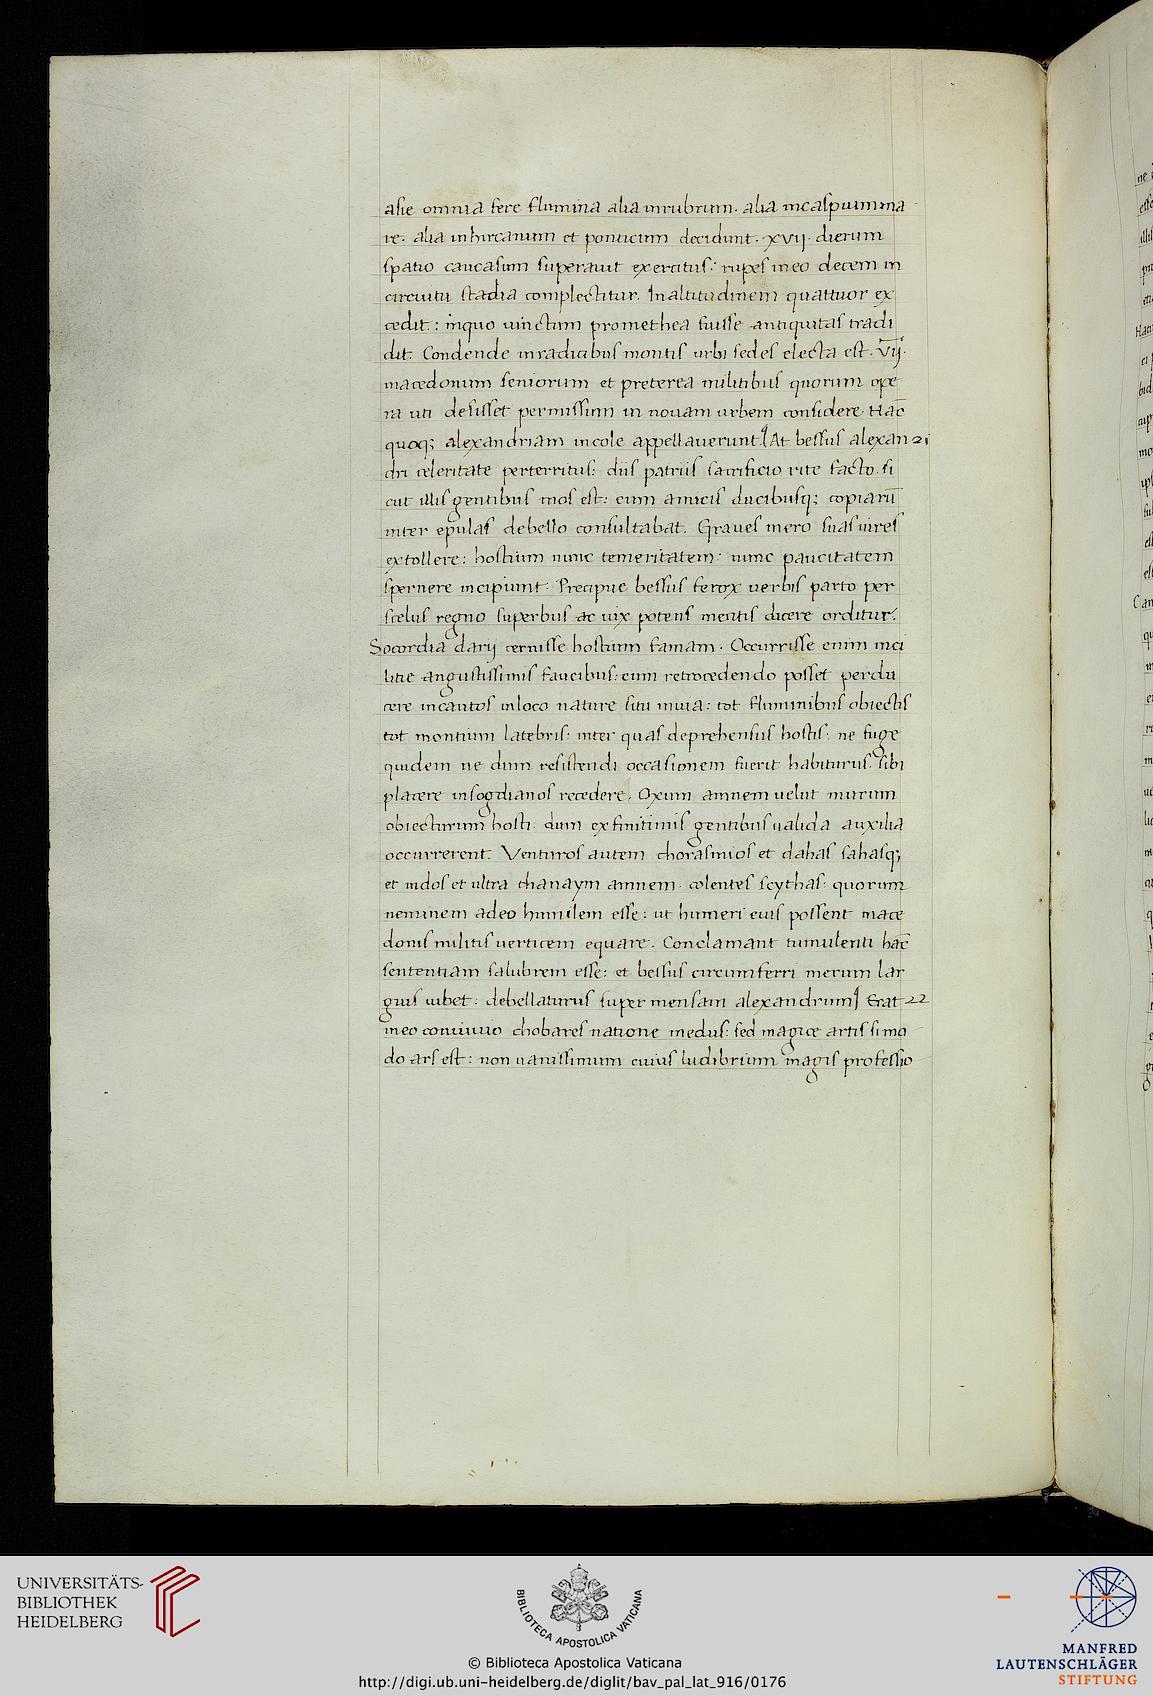 asie omnia fere flumina alia inrubrum. alia incaspium ma
re. alia inhircanum et ponticum decidunt. xvij. dierum
spatio caucasum superauit exercitus: rupes ineo decem in
circuitu stadia complectitur. Inaltitudinem quattuor ex
cedit: inquo uinctum promethea fuisse antiquitas tradi
dit. Condende inradicibus montis urbi sedes electa est. Vij.
macedonum seniorum et preterea militibus quorum ope
ra uti desisset permissum in nouam urbem considere. Hac̄
quoq; alexandriam incole appellauerunt. At bessus alexan 21
dri celeritate perterritus: diis patriis sacrificio rite facto. si
cut illis gentibus mos est: cum amicis ducibusq; copiarū
inter epulas debello consultabat. Graues mero suas uires
extollere: hostium nunc temeritatem: nunc paucitatem
spernere incipiunt: Precipue bessus ferox uerbis parto per
scelus regno superbus ac uix potens mentis dicere orditur.
Socordia darij creuisse hostium famam. Occurrisse enim inci
litie angustissimis faucibus: cum retrocedendo posset perdu
cere incautos inloco nature situ inuia: tot fluminibus obiectis
tot montium latebris: inter quas deprehensus hostis: ne fuge
quidem ne dum resistendi occasionem fuerit habiturus. sibi
placere insogdianos recedere. Oxum amnem uelut murum
obiecturum hosti: dum exfinitimis gentibus ualida auxilia
occurrerent. Venturos autem chorasmios et dahas sahasq;
et indos et ultra thanaym amnem. colentes scythas: quorum
neminem adeo humilem esse: ut humeri eius possent mace
donis militis uerticem equare. Conclamant tumulenti hac̄
sententiam salubrem esse: et bessus circumferri merum lar
gius iubet: debellaturus super mensam alexandrum. Erat 22
ineo conuiuio chobares natione medus: sed magice artis si mo
do ars est: non uanissimum cuius ludibrium magis professio
UNIVERSITÄTS-
BIBLIOTHEK
HEIDELBERG
BIBLIOTECA APOSTOLICA VATICANA
© Biblioteca Apostolica Vaticana
http://digi.ub.uni-heidelberg.de/diglit/bav_pal_lat_916/0176
MANFRED
LAUTENSCHLÄGER
STIFTUNG